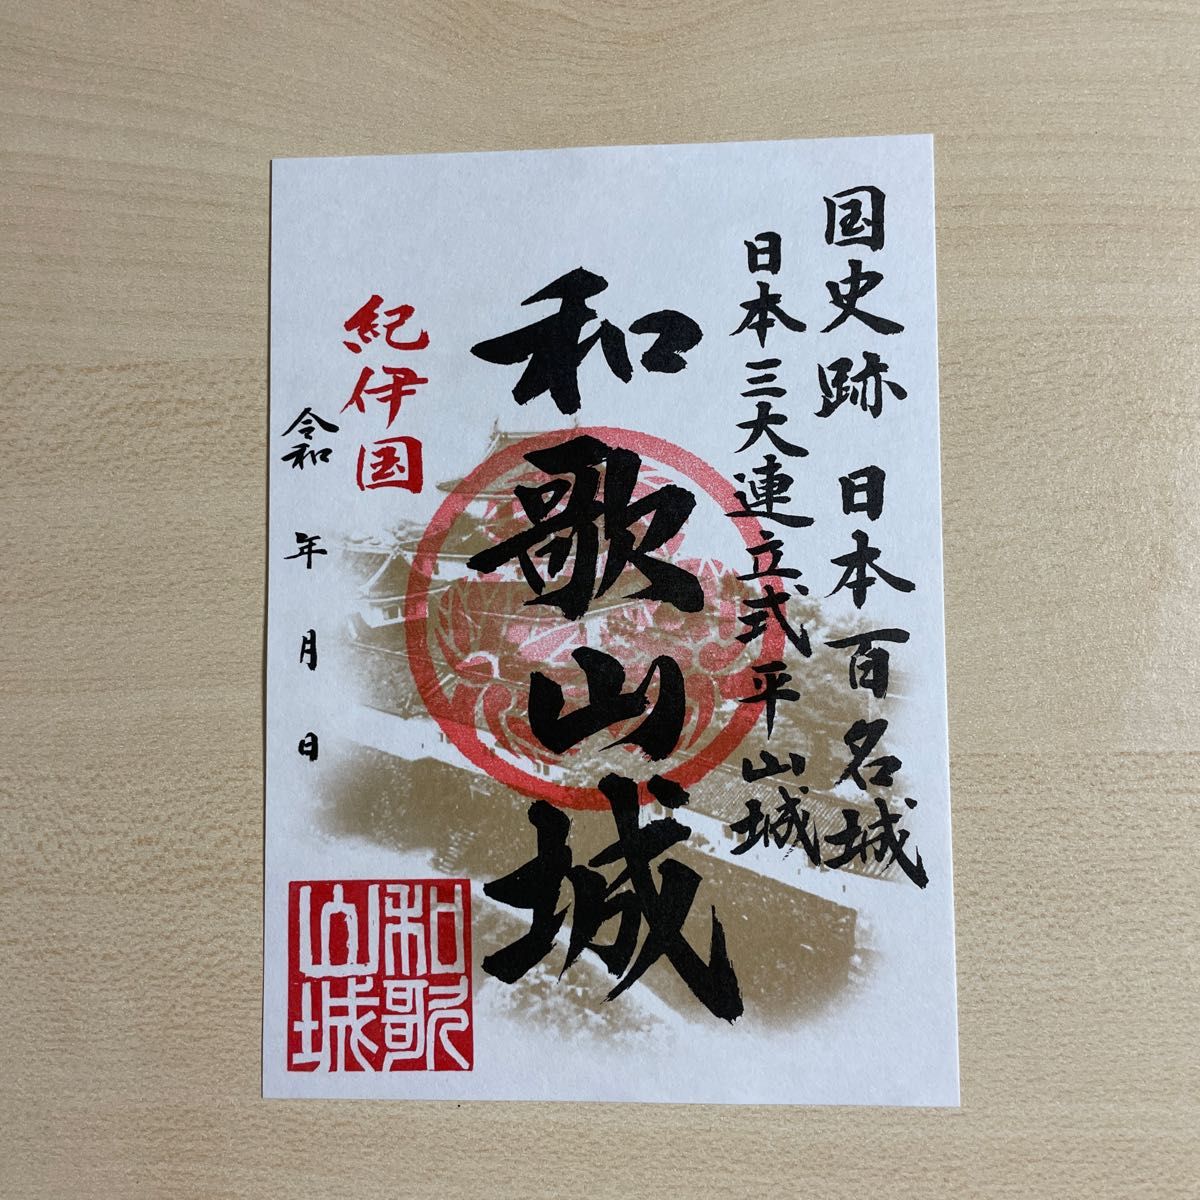 国史跡 日本百名城
日本三大連立式平山城
和歌山城
紀伊国
令和 年 月 日
和歌
山城